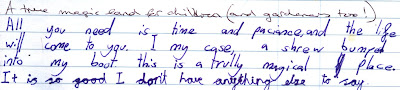 A true magic land for children (and gardeners too!)
All you need is time and pacance, and the life
will come to you. I my case, a shrew bumped
into my bout this is a trully magical place.
It is so good I don't have anything else to say